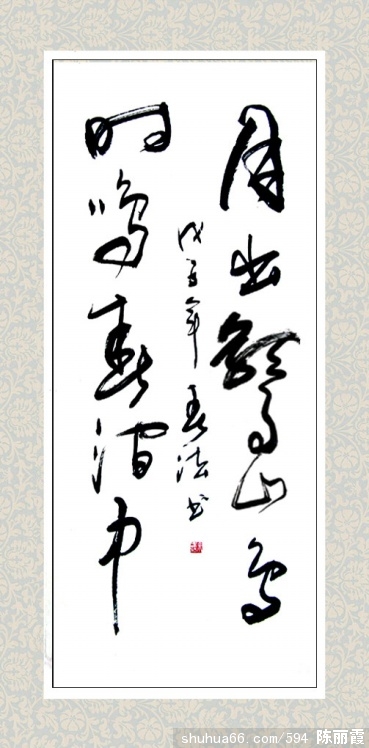 月出驚山鳥
时鳴春澗中
戊子年春法书
shuhua66.com/594 陈丽霞